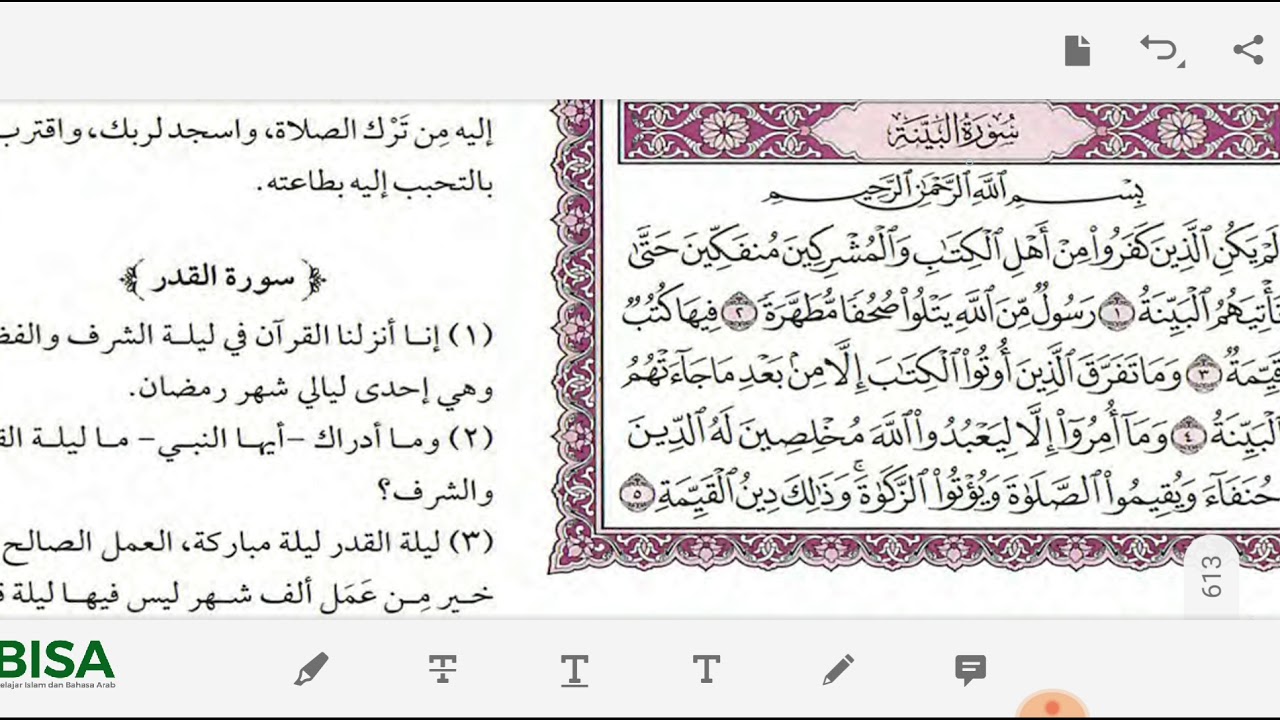 سُورَةُ الْبَيِّنَةِ
بِسْمِ ٱللَّهِ ٱلرَّحْمَٰنِ ٱلرَّحِيمِ
لَمْ يَكُنِ ٱلَّذِينَ كَفَرُوا۟ مِنْ أَهْلِ ٱلْكِتَٰبِ وَٱلْمُشْرِكِينَ مُنفَكِّينَ حَتَّىٰ
تَأْتِيَهُمُ ٱلْبَيِّنَةُ ١ رَسُولٌ مِّنَ ٱللَّهِ يَتْلُوا۟ صُحُفًا مُّطَهَّرَةً ٢ فِيهَا كُتُبٌ
قَيِّمَةٌ ٣ وَمَا تَفَرَّقَ ٱلَّذِينَ أُوتُوا۟ ٱلْكِتَٰبَ إِلَّا مِنۢ بَعْدِ مَا جَآءَتْهُمُ
ٱلْبَيِّنَةُ ٤ وَمَآ أُمِرُوٓا۟ إِلَّا لِيَعْبُدُوا۟ ٱللَّهَ مُخْلِصِينَ لَهُ ٱلدِّينَ
حُنَفَآءَ وَيُقِيمُوا۟ ٱلصَّلَوٰةَ وَيُؤْتُوا۟ ٱلزَّكَوٰةَ ۚ وَذَٰلِكَ دِينُ ٱلْقَيِّمَةِ ٥
613
إليه مِن تَرْك الصلاة، واسجد لربك، واقترب
بالتحبب إليه بطاعته.
﴿ سورة القدر ﴾
(١) إنا أنزلنا القرآن في ليلة الشرف والفض
وهي إحدى ليالي شهر رمضان.
(٢) وما أدراك -أيها النبي- ما ليلة الق
والشرف؟
(٣) ليلة القدر ليلة مباركة، العمل الصالح
خير مِن عَمَل ألف شهر ليس فيها ليلة ق
BISA
elajar Islam dan Bahasa Arab